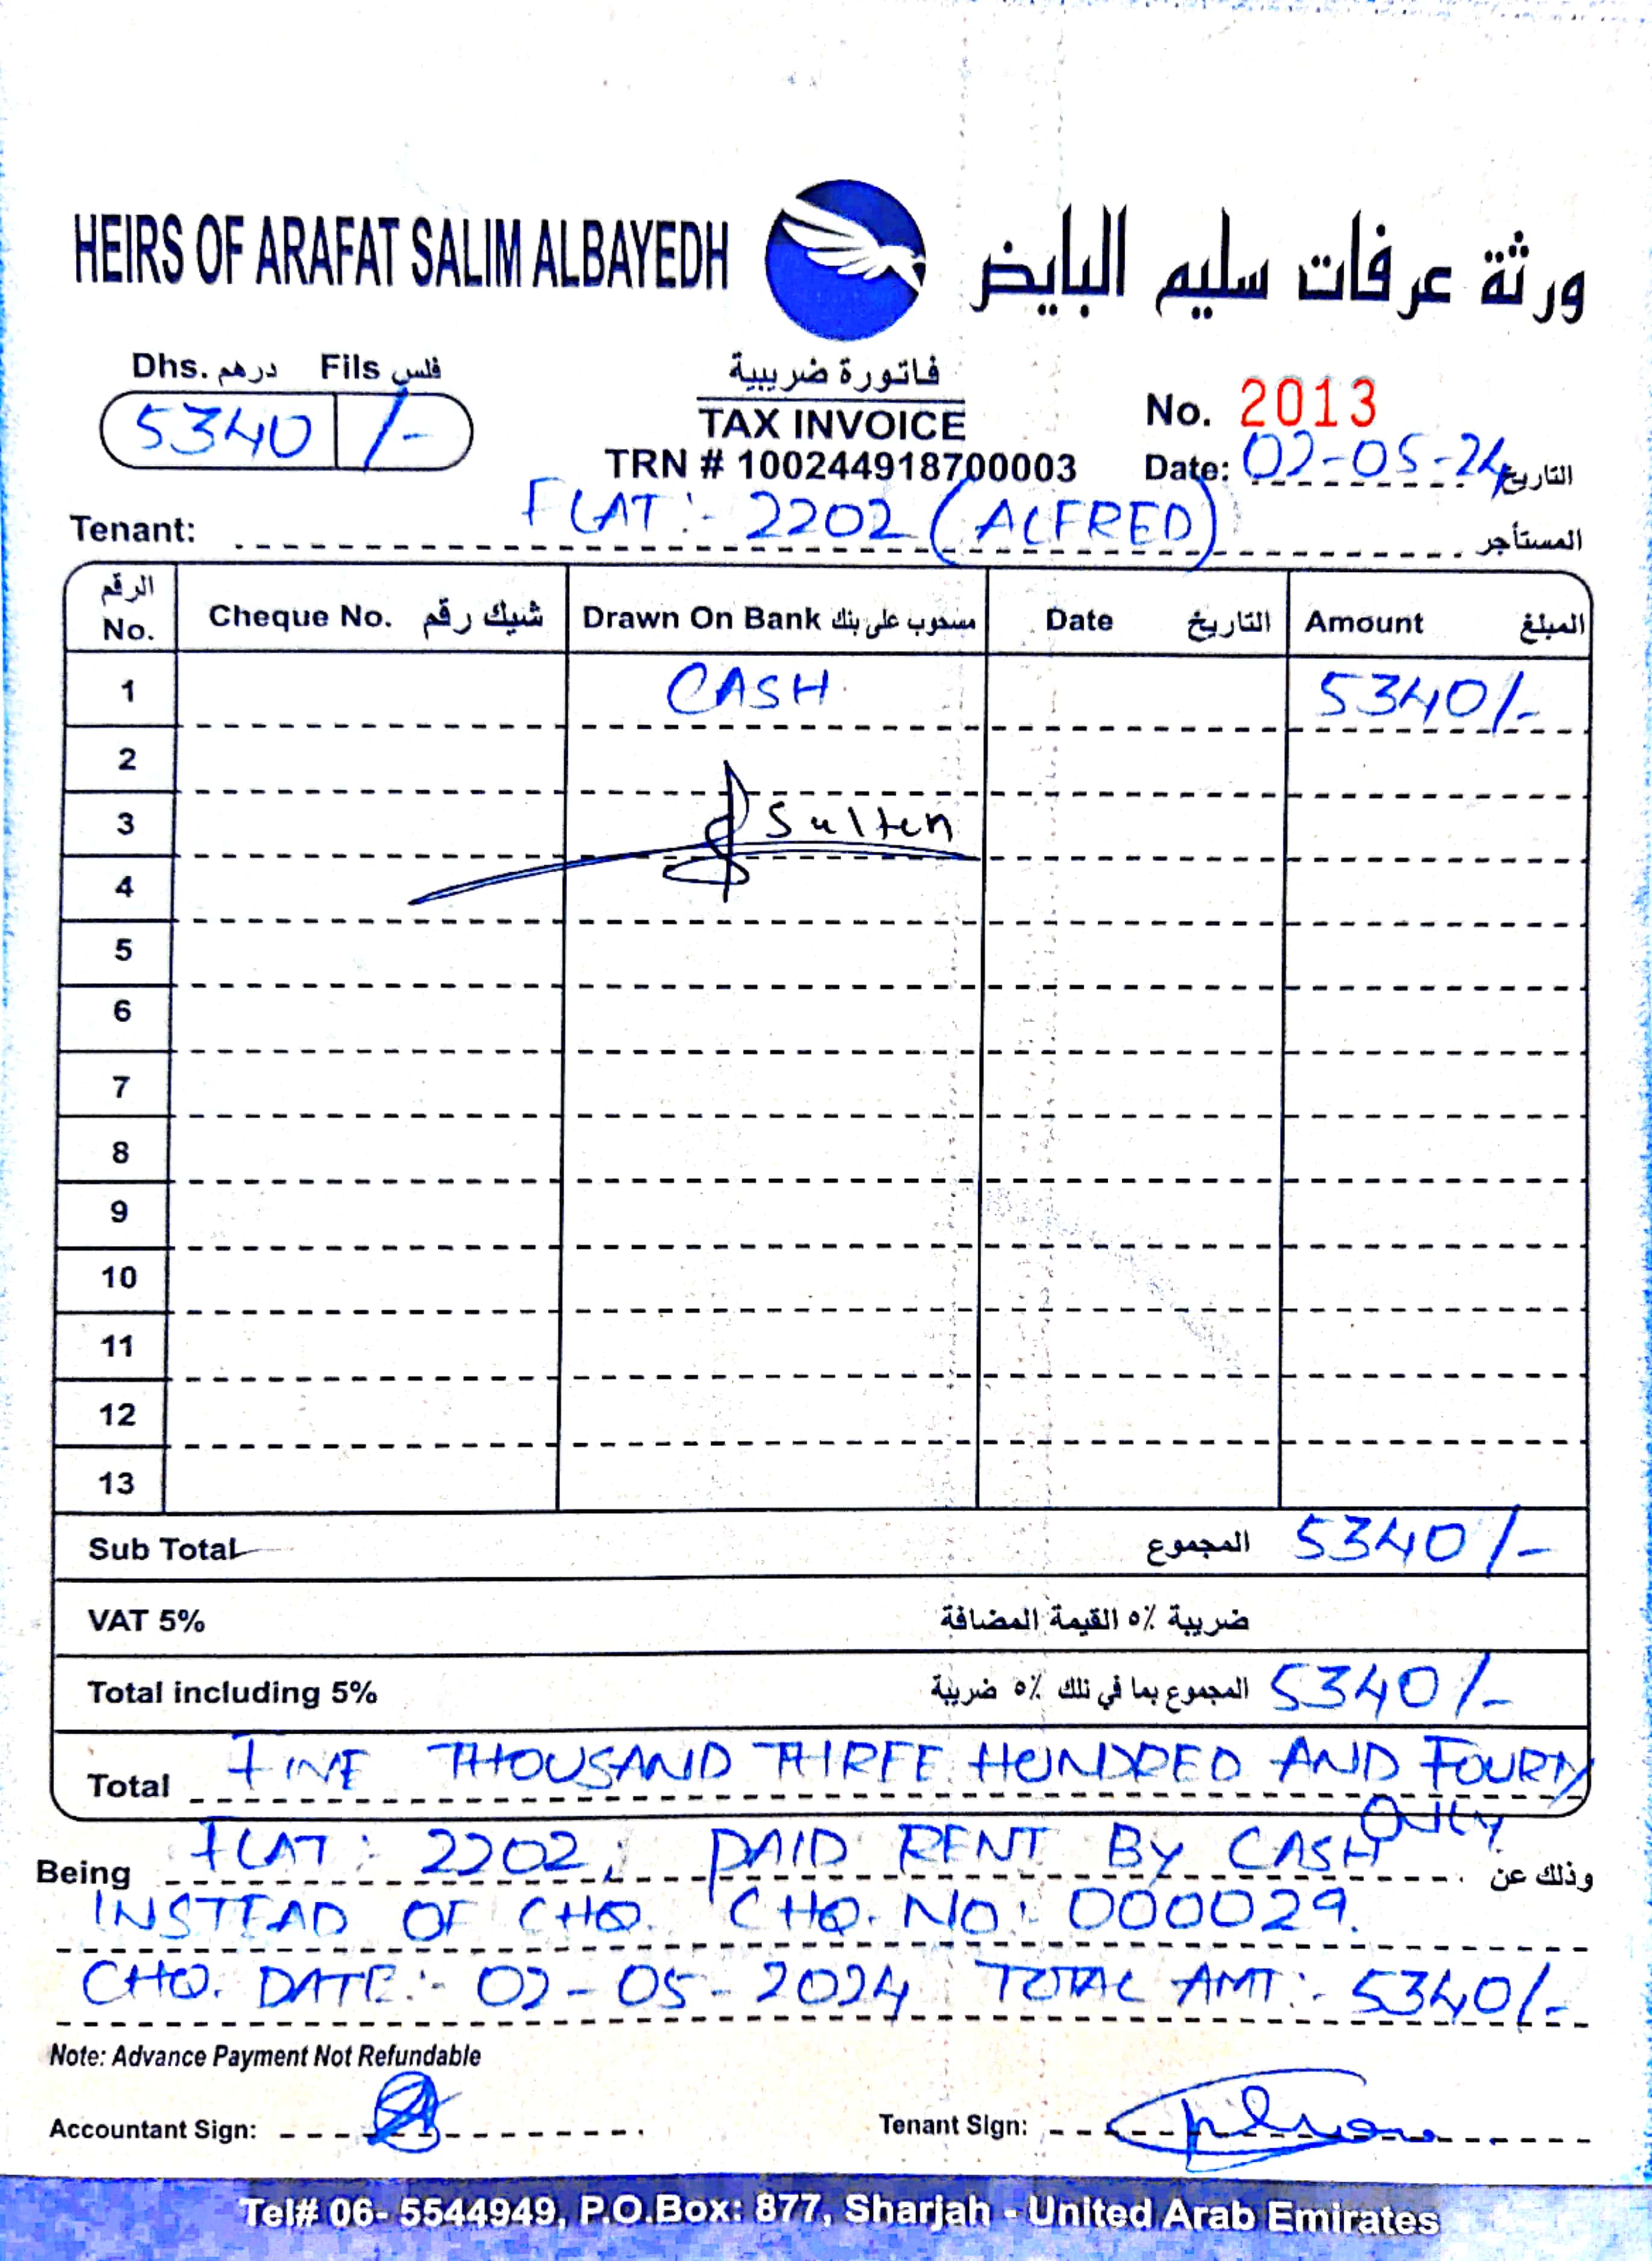 HEIRS OF ARAFAT SALIM ALBAYEDH ورثة عرفات سليم البايض
Dhs. درهم Fils فلس
5340 /-
فاتورة ضريبية
TAX INVOICE
TRN # 100244918700003
No. 2013
Date: 02-05-24 التاريخ
Tenant: FLAT:- 2202 (ALFRED) المستأجر
الرقم No. Cheque No. شيك رقم Drawn On Bank مسحوب على بنك Date التاريخ Amount المبلغ
1 CASH 5340/-
2
3 Sulten
4
5
6
7
8
9
10
11
12
13
Sub Total المجموع 5340/-
VAT 5% ضريبة ٥٪ القيمة المضافة
Total including 5% المجموع بما في ذلك ٥٪ ضريبة 5340/-
Total FIVE THOUSAND THREE HUNDRED AND FOURTY
ONLY
Being FLAT: 2202; PAID RENT BY CASH وذلك عن
INSTEAD OF CHQ. CHQ. NO: 000029.
CHQ. DATE:- 02-05-2024 TOTAL AMT:- 5340/-
Note: Advance Payment Not Refundable
Accountant Sign: Tenant Sign:
Tel# 06- 5544949, P.O.Box: 877, Sharjah - United Arab Emirates